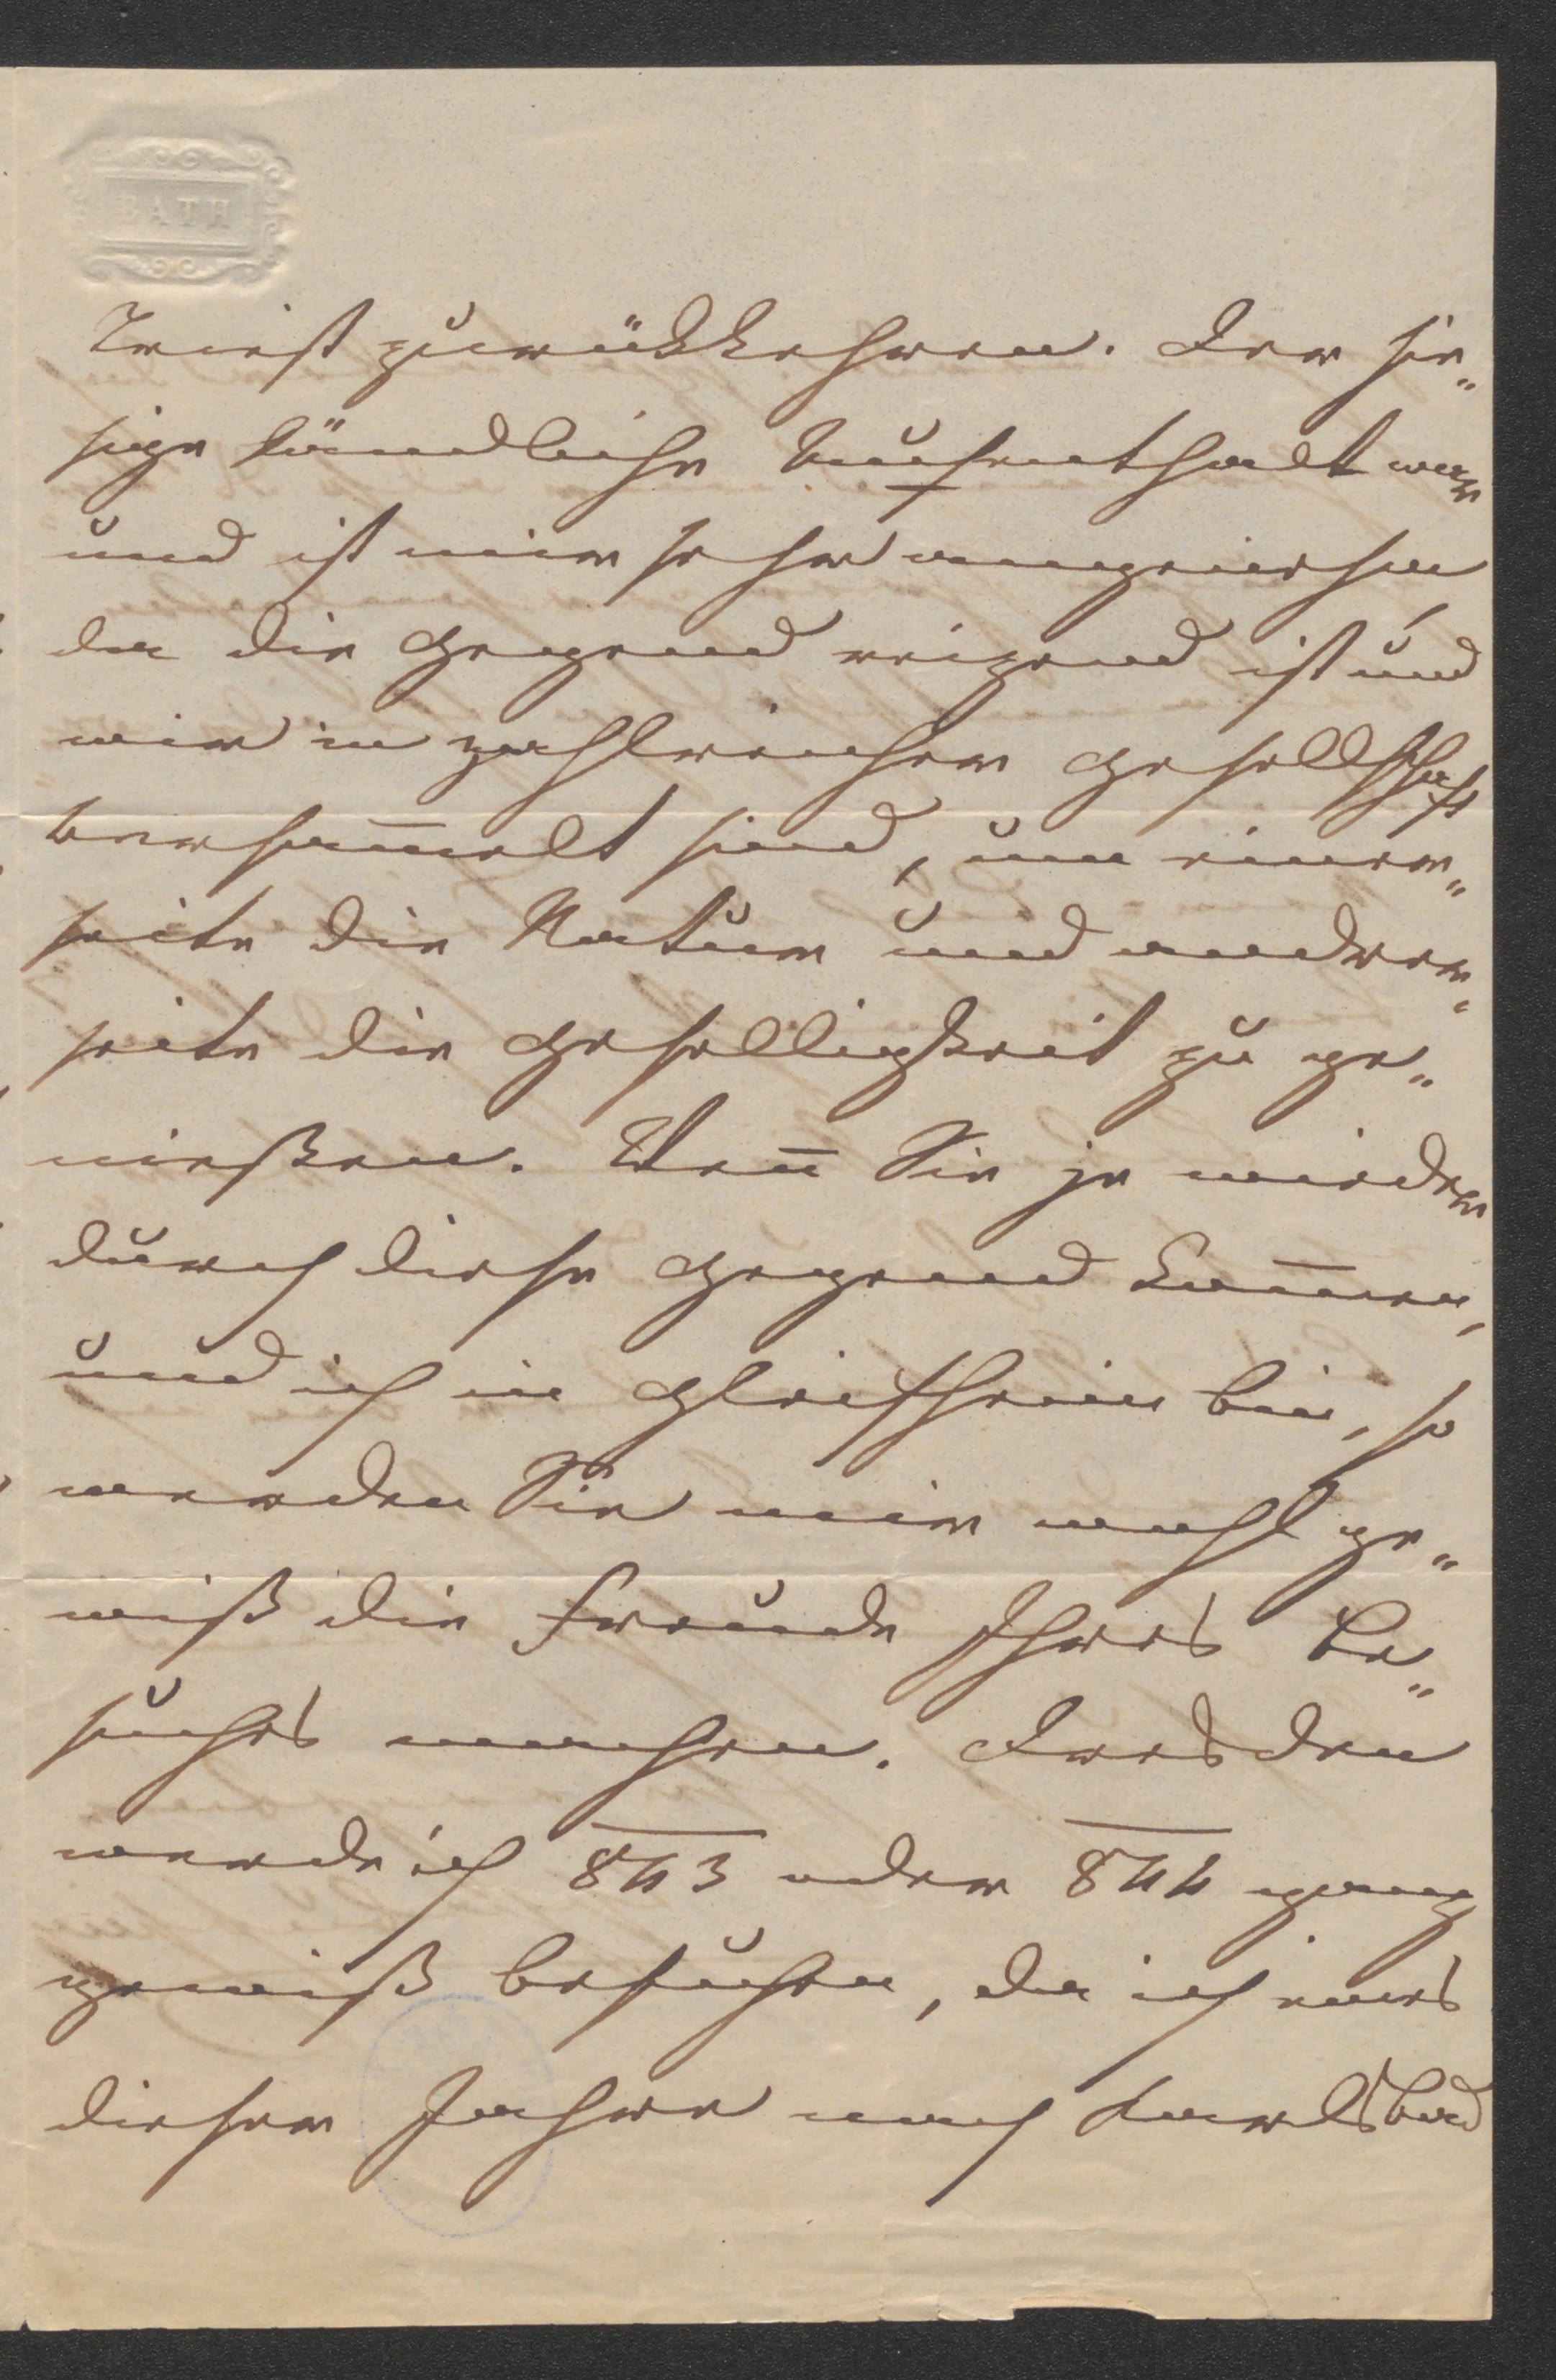 BATH
Triest zurükkehren. Der hie„
sige ländliche Aufenthalt war
und ist mir sehr angeniehm
da die Gegend reizend ist und
wir in zahlreicher Gesellschaft
versam̅elt sind, um einer„
seits die Natur und anderer„
seits die Geselligkeit zu ge„
nießen. Wen̅ Sie je wieder
durch diese Gegend kom̅en,
und ich in Gleifheim bin, so
werden Sie mir wohl ge„
wiß die Freude Ihres Be„
suches machen. Dresden
werde ich 843 oder 844 ganz
gewiß besuchen, da ich eines
dieser Jahre nach Karlsbad